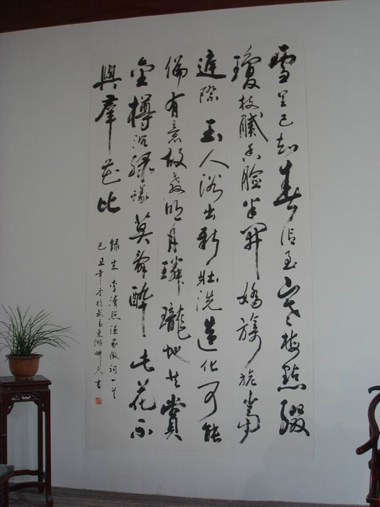 雪里已知春信至寒梅點綴
瓊枝膩香臉半開嬌旖旎當
庭際玉人浴出新妝洗造化可能
偏有意故教明月玲瓏地共賞
金樽沉綠蟻莫辭醉此花不
與羣花比
錄宋李清照漁家傲詞一首
己丑年冬於